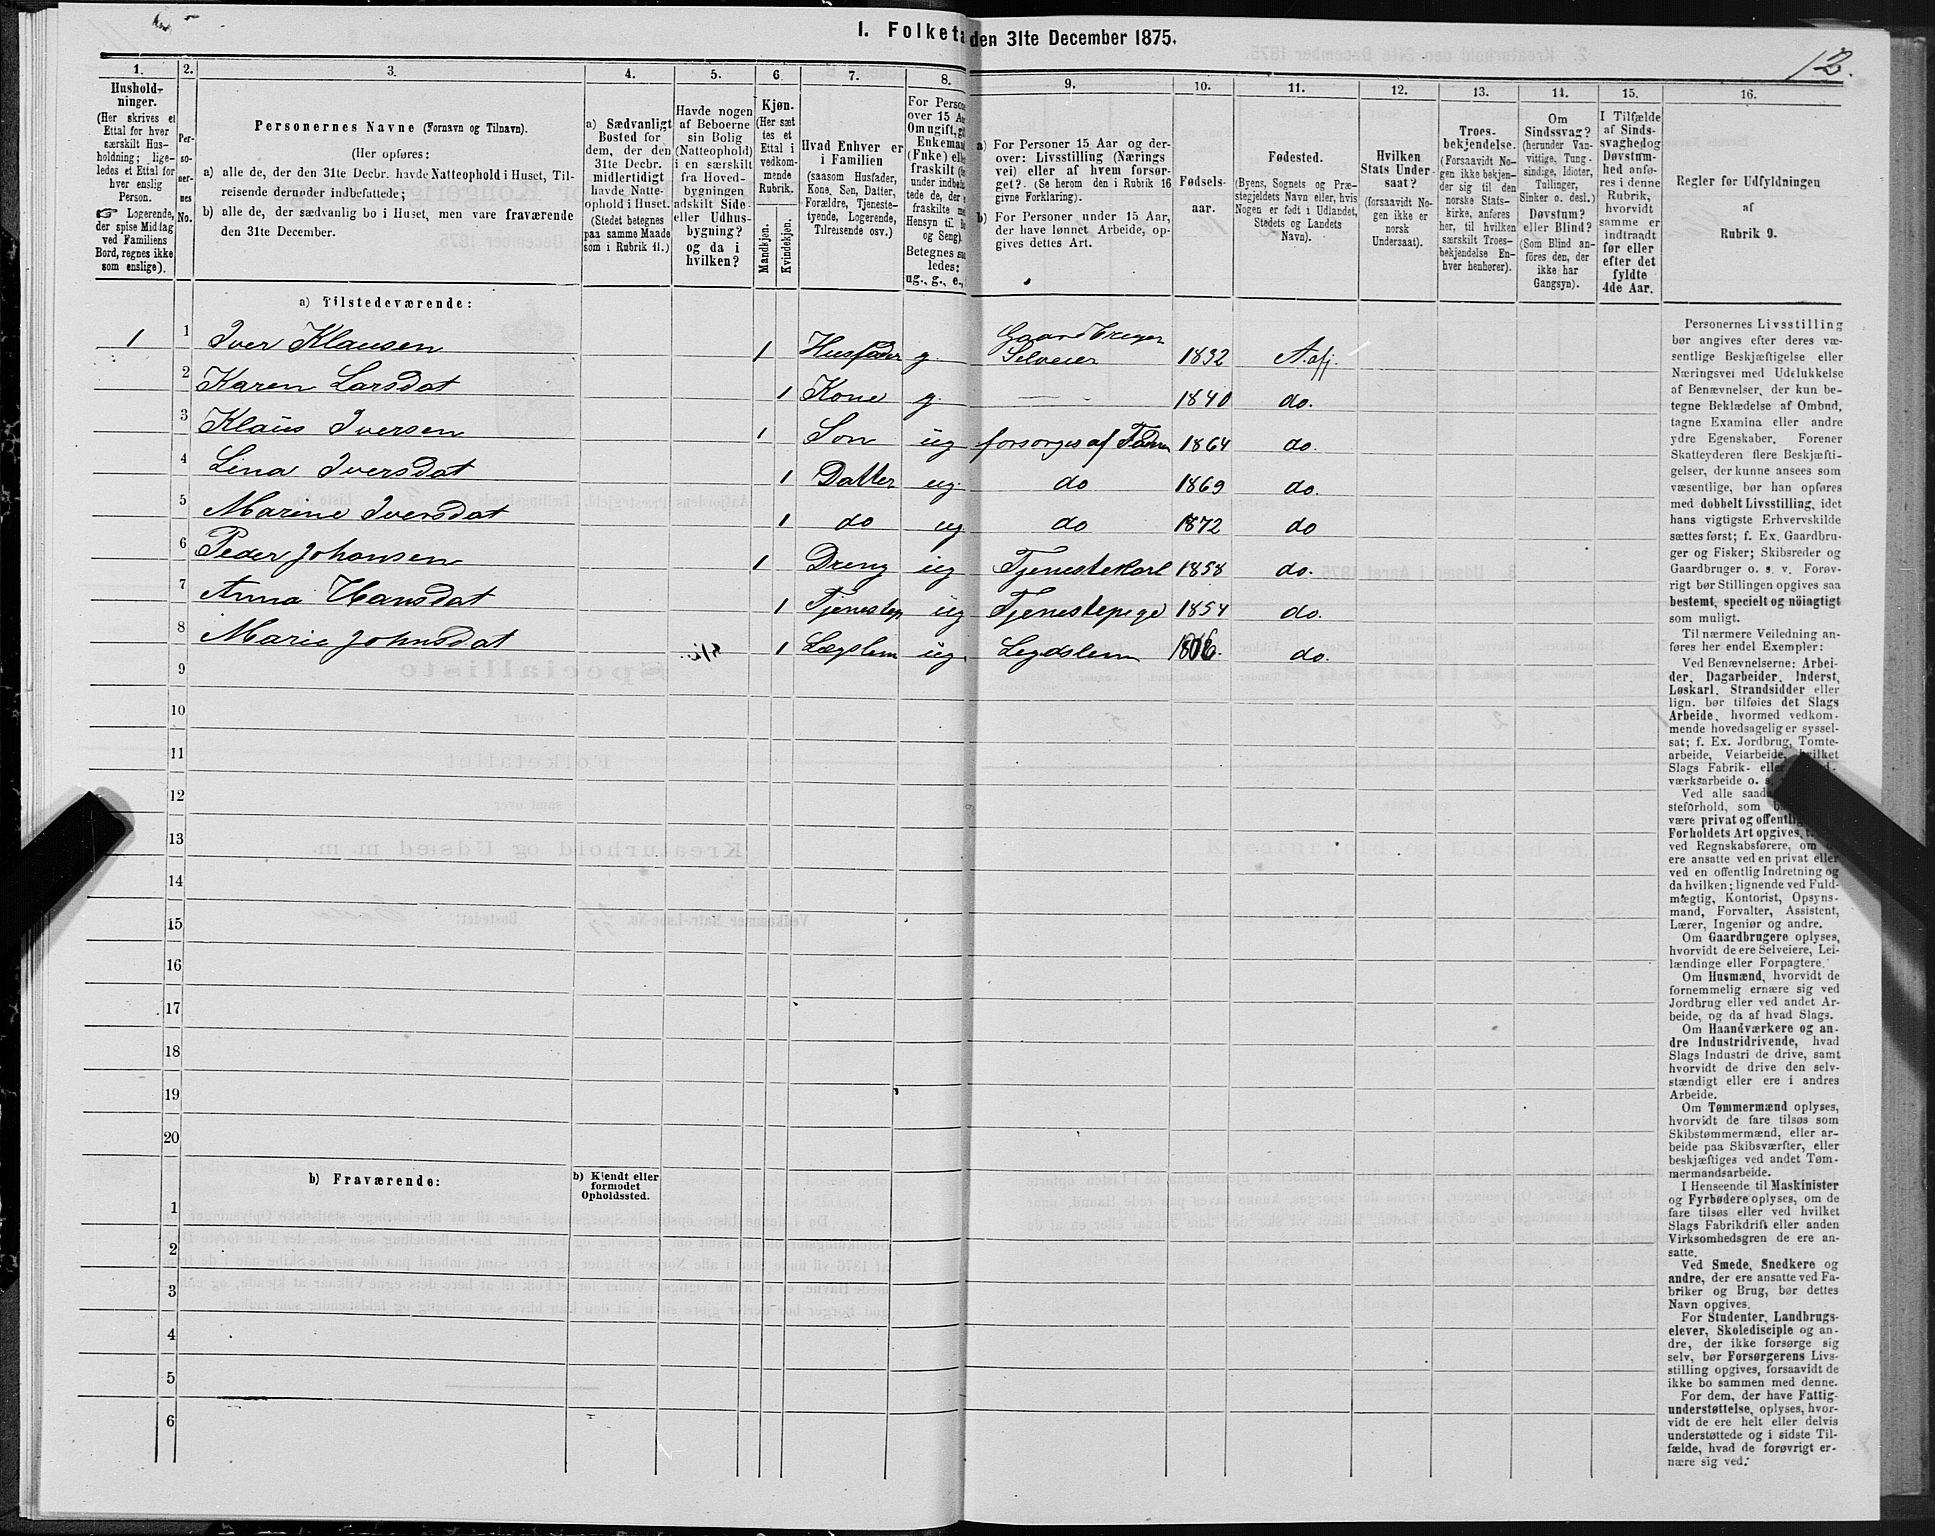 I. Folketa den 31te December 1875.
12.
1. 2. 3. 4. 5. 6. 7. 8. 9. 10. 11. 12. 13. 14. 15. 16.
Hushold-
ninger.
(Her skrives et
Ettal for hver
særskilt Hus-
holdning; lige-
ledes et Ettal for
hver enslig
Person.
☞ Logerende,
der spise Middag
ved Familiens
Bord, regnes ikke
som enslige).
Per-
so-
ner-
nes
No.
Personernes Navne (Fornavn og Tilnavn).
(Her opføres:
a) alle de, der den 31te Decbr. havde Natteophold i Huset, Til-
reisende derunder indbefattede;
b) alle de, der sædvanlig bo i Huset, men vare fraværende
den 31te December.
a) Sædvanligt
Bosted for
dem, der den
31te Decbr.
midlertidigt
havde Natte-
ophold i Huset.
(Stedet betegnes
paa samme Maade
som i Rubrik 11.)
Havde nogen
af Beboerne
sin Bolig
(Natteophold)
i en særskilt
fra Hoved-
bygningen
adskilt Side-
eller Udhus-
bygning?
og da i
hvilken?
Kjøn.
(Her sæt-
tes et
Ettal i
vedkom-
mende
Rubrik.
Mandkjøn.
Kvindekjøn.
Hvad Enhver er
i Familien
(saasom Husfader,
Kone, Søn, Datter,
Forældre, Tjeneste-
tyende, Logerende,
Tilreisende osv.)
For Perso
over 15 Aa
Om ugift, gi
Enkemand
(Enke) elle
fraskilt
under indbe
tede de, der
fraskilte
Hensyn til B
og Seng).
Betegnes saa
ledes:
ug., g., e.,
a) For Personer 15 Aar og der-
over: Livsstilling (Nærings
vei) eller af hvem forsør-
get?. (Se herom den i Rubrik 16
givne Forklaring).
b) For Personer under 15 Aar,
der have lønnet Arbeide, op-
gives dettes Art.
Fødsels-
aar.
Fødested.
(Byens, Sognets og Præ-
stegjeldets Navn eller, hvis
Nogen er født i Udlandet,
Stedets og Landets
Navn).
Hvilken
Stats Under-
saat?
(forsaavidt No-
gen ikke er
norsk
Undersaat).
Troes-
bekjendelse.
(Forsaavidt No-
gen ikke bekjen-
der sig til den
norske Stats-
kirke, anføres
her, til hvilken
særskilt Troes-
bekjendelse En-
hver henhører).
Om
Sindssvag?
(herunder Van-
vittige, Tung-
sindige, Idioter,
Tullinger,
Sinker o. desl.)
Døvstum?
eller Blind?
(Som Blind an-
føres den, der
ikke har
Gangsyn).
I Tilfælde
af Sinds-
svaghed og
Døvstum-
hed anfø-
res i denne
Rubrik,
hvorvidt
samme er
indtraadt
før eller
efter det
fyldte
4de Aar.
Regler for Udfyldningen
af
Rubrik 9.
a) Tilstedeværende:
1 1 Iver Klausen 1 Husfader g. Gaardbruger Selveier 1832 Aafj.
2 Karen Larsdat 1 Kone g. — 1840 do.
3 Klaus Iversen 1 Søn ug forsorges af Faderen 1864 do.
4 Lina Iversdat 1 Datter ug. do 1869 do.
5 Marine Iversdat 1 do ug do 1872 do
6 Peder Johansen 1 Dreng ug Tjenestekarl 1858 do.
7 Anna Hansdat 1 Tjenestep ug Tjenestepige 1854 do.
8 Marie Johnsdat 1 Lægslem ug. Legdslem do.
9
10
11
12
13
14
15
16
17
18
19
20
b) Fraværende:
b) Kjendt eller
formodet
Opholdssted.
1
2
3
4
5
6
Personernes Livsstilling
bør angives efter deres væ-
sentlige Beskjæftigelse eller
Næringsvei med Udelukkelse
af Benævnelser, der kun be-
tegne Beklædelse af Ombud,
tagne Examina eller andre
ydre Egenskaber. Forener
Skatteyderen flere Beskjæfti-
gelser, der kunne ansees som
væsentlige, bør han opføres
med dobbelt Livsstilling, idet
hans vigtigste Erhvervskilde
sættes først; f. Ex. Gaardbru-
ger og Fisker; Skibsreder og
Gaardbruger o. s. v. Forøv-
rigt bør Stillingen opgives saa
bestemt, specielt og nöiagtigt
som muligt.
Til nærmere Veiledning an-
føres her endel Exempler:
Ved Benævnelserne: Arbei-
der, Dagarbeider, Inderst,
Løskarl, Strandsidder eller
lign. bør tilføies det Slags
Arbeide, hvormed vedkom-
mende hovedsagelig er syssel-
sat; f. Ex. Jordbrug, Tomte-
arbeide, Veiarbeide, hvilket
Slags Fabrik- eller
værksarbeide o. s.
Ved alle saad
steforhold, som
være privat og offentlig
Forholdets Art opgives,
ved Regnskabsførere, om
ere ansatte ved en privat eller
ved en offentlig Indretning og
da hvilken; lignende ved Fuld-
mægtig, Kontorist, Opsyns-
mand, Forvalter, Assistent,
Lærer, Ingeniør og andre.
Om Gaardbrugere oplyses,
hvorvidt de ere Selveiere, Lei-
lændinge eller Forpagtere.
Om Husmænd, hvorvidt de
fornemmelig ernære sig ved
Jordbrug eller ved andet Ar-
beide, og da af hvad Slags.
Om Haandværkere og an-
dre Industridrivende, hvad
Slags Industri de drive, samt
hvorvidt de drive den selv-
stændigt eller ere i andres
Arbeide.
Om Tømmermænd oplyses,
hvorvidt de fare tilsøs som
Skibstømmermænd, eller ar-
beide paa Skibsværfter, eller
beskjæftiges ved andet Tøm-
mermandsarbeide.
I Henseende til Maskinister
og Fyrbødere oplyses, om de
fare tilsøs eller ved hvilket
Slags Fabrikdrift eller anden
Virksomhedsgren de ere an-
satte.
Ved Smede, Snedkere og
andre, der ere ansatte ved Fa-
briker og Brug, bør dettes
Navn opgives.
For Studenter, Landbrugs-
elever, Skoledisciple og an-
dre, der ikke forsørge sig
selv, bør Forsørgerens Livs-
stilling opgives, forsaavidt de
ikke bo sammen med denne.
For dem, der have Fattig-
understøttelse, oplyses, hvor-
vidt de ere helt eller delvis
understøttede og i sidste Til-
fælde, hvad de forøvrigt er-
nære sig ved.